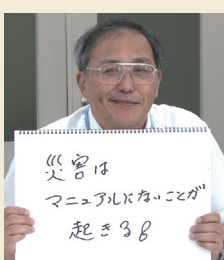 災害は
マニュアルにないことが
起きる。